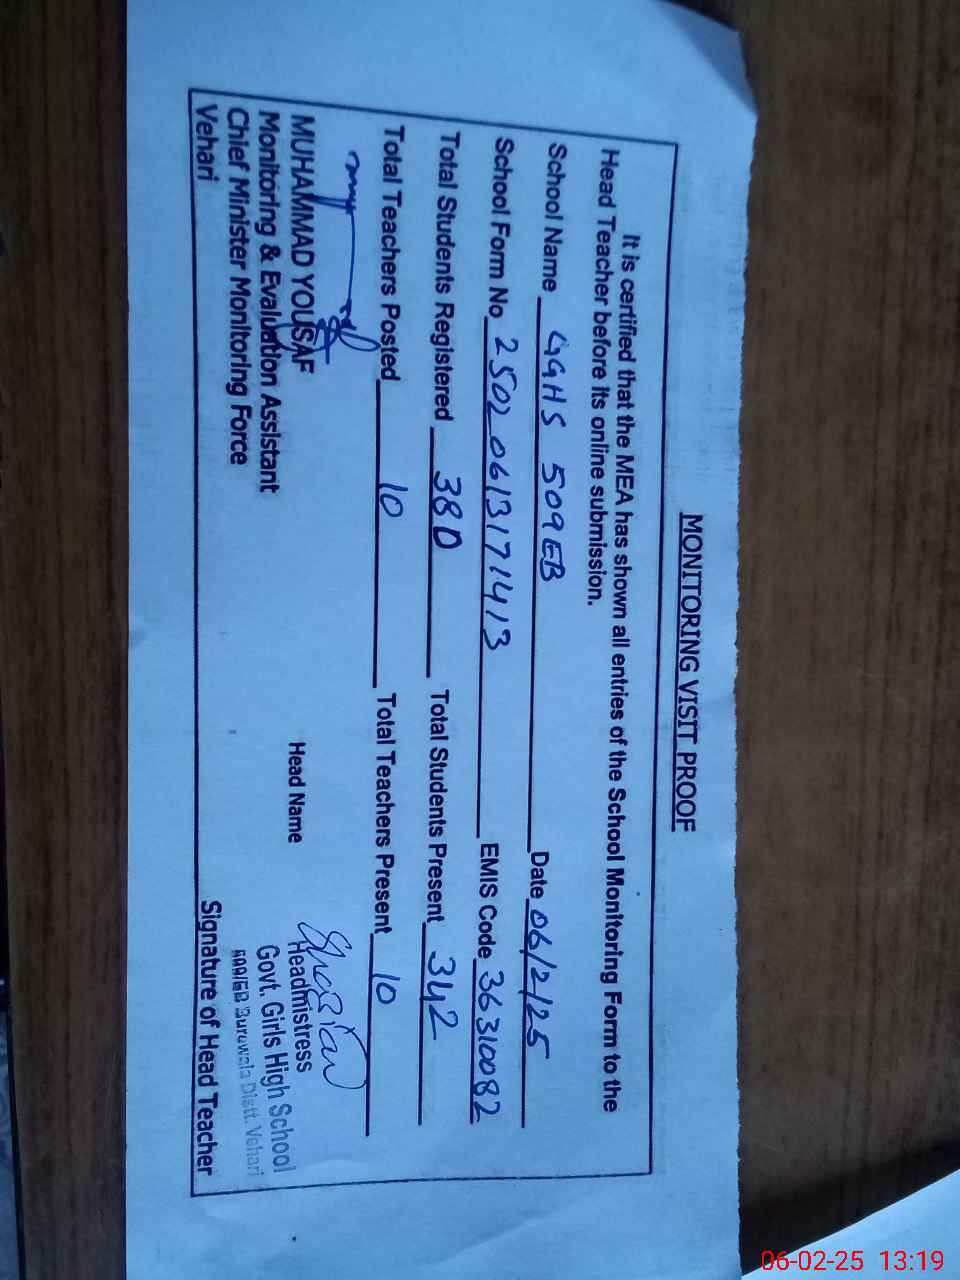 MONITORING VISIT PROOF
It is certified that the MEA has shown all entries of the School Monitoring Form to the
Head Teacher before its online submission.
School Name GGHS 509EB Date 06/2/25
School Form No 25020613171413 EMIS Code 36310082
Total Students Registered 380 Total Students Present 342
Total Teachers Posted 10 Total Teachers Present 10
MUHAMMAD YOUSAF
Monitoring & Evaluation Assistant
Chief Minister Monitoring Force
Vehari
Head Name
Headmistress
Govt. Girls High School
Burewala Distt. Vehari
Signature of Head Teacher
06-02-25 13:19